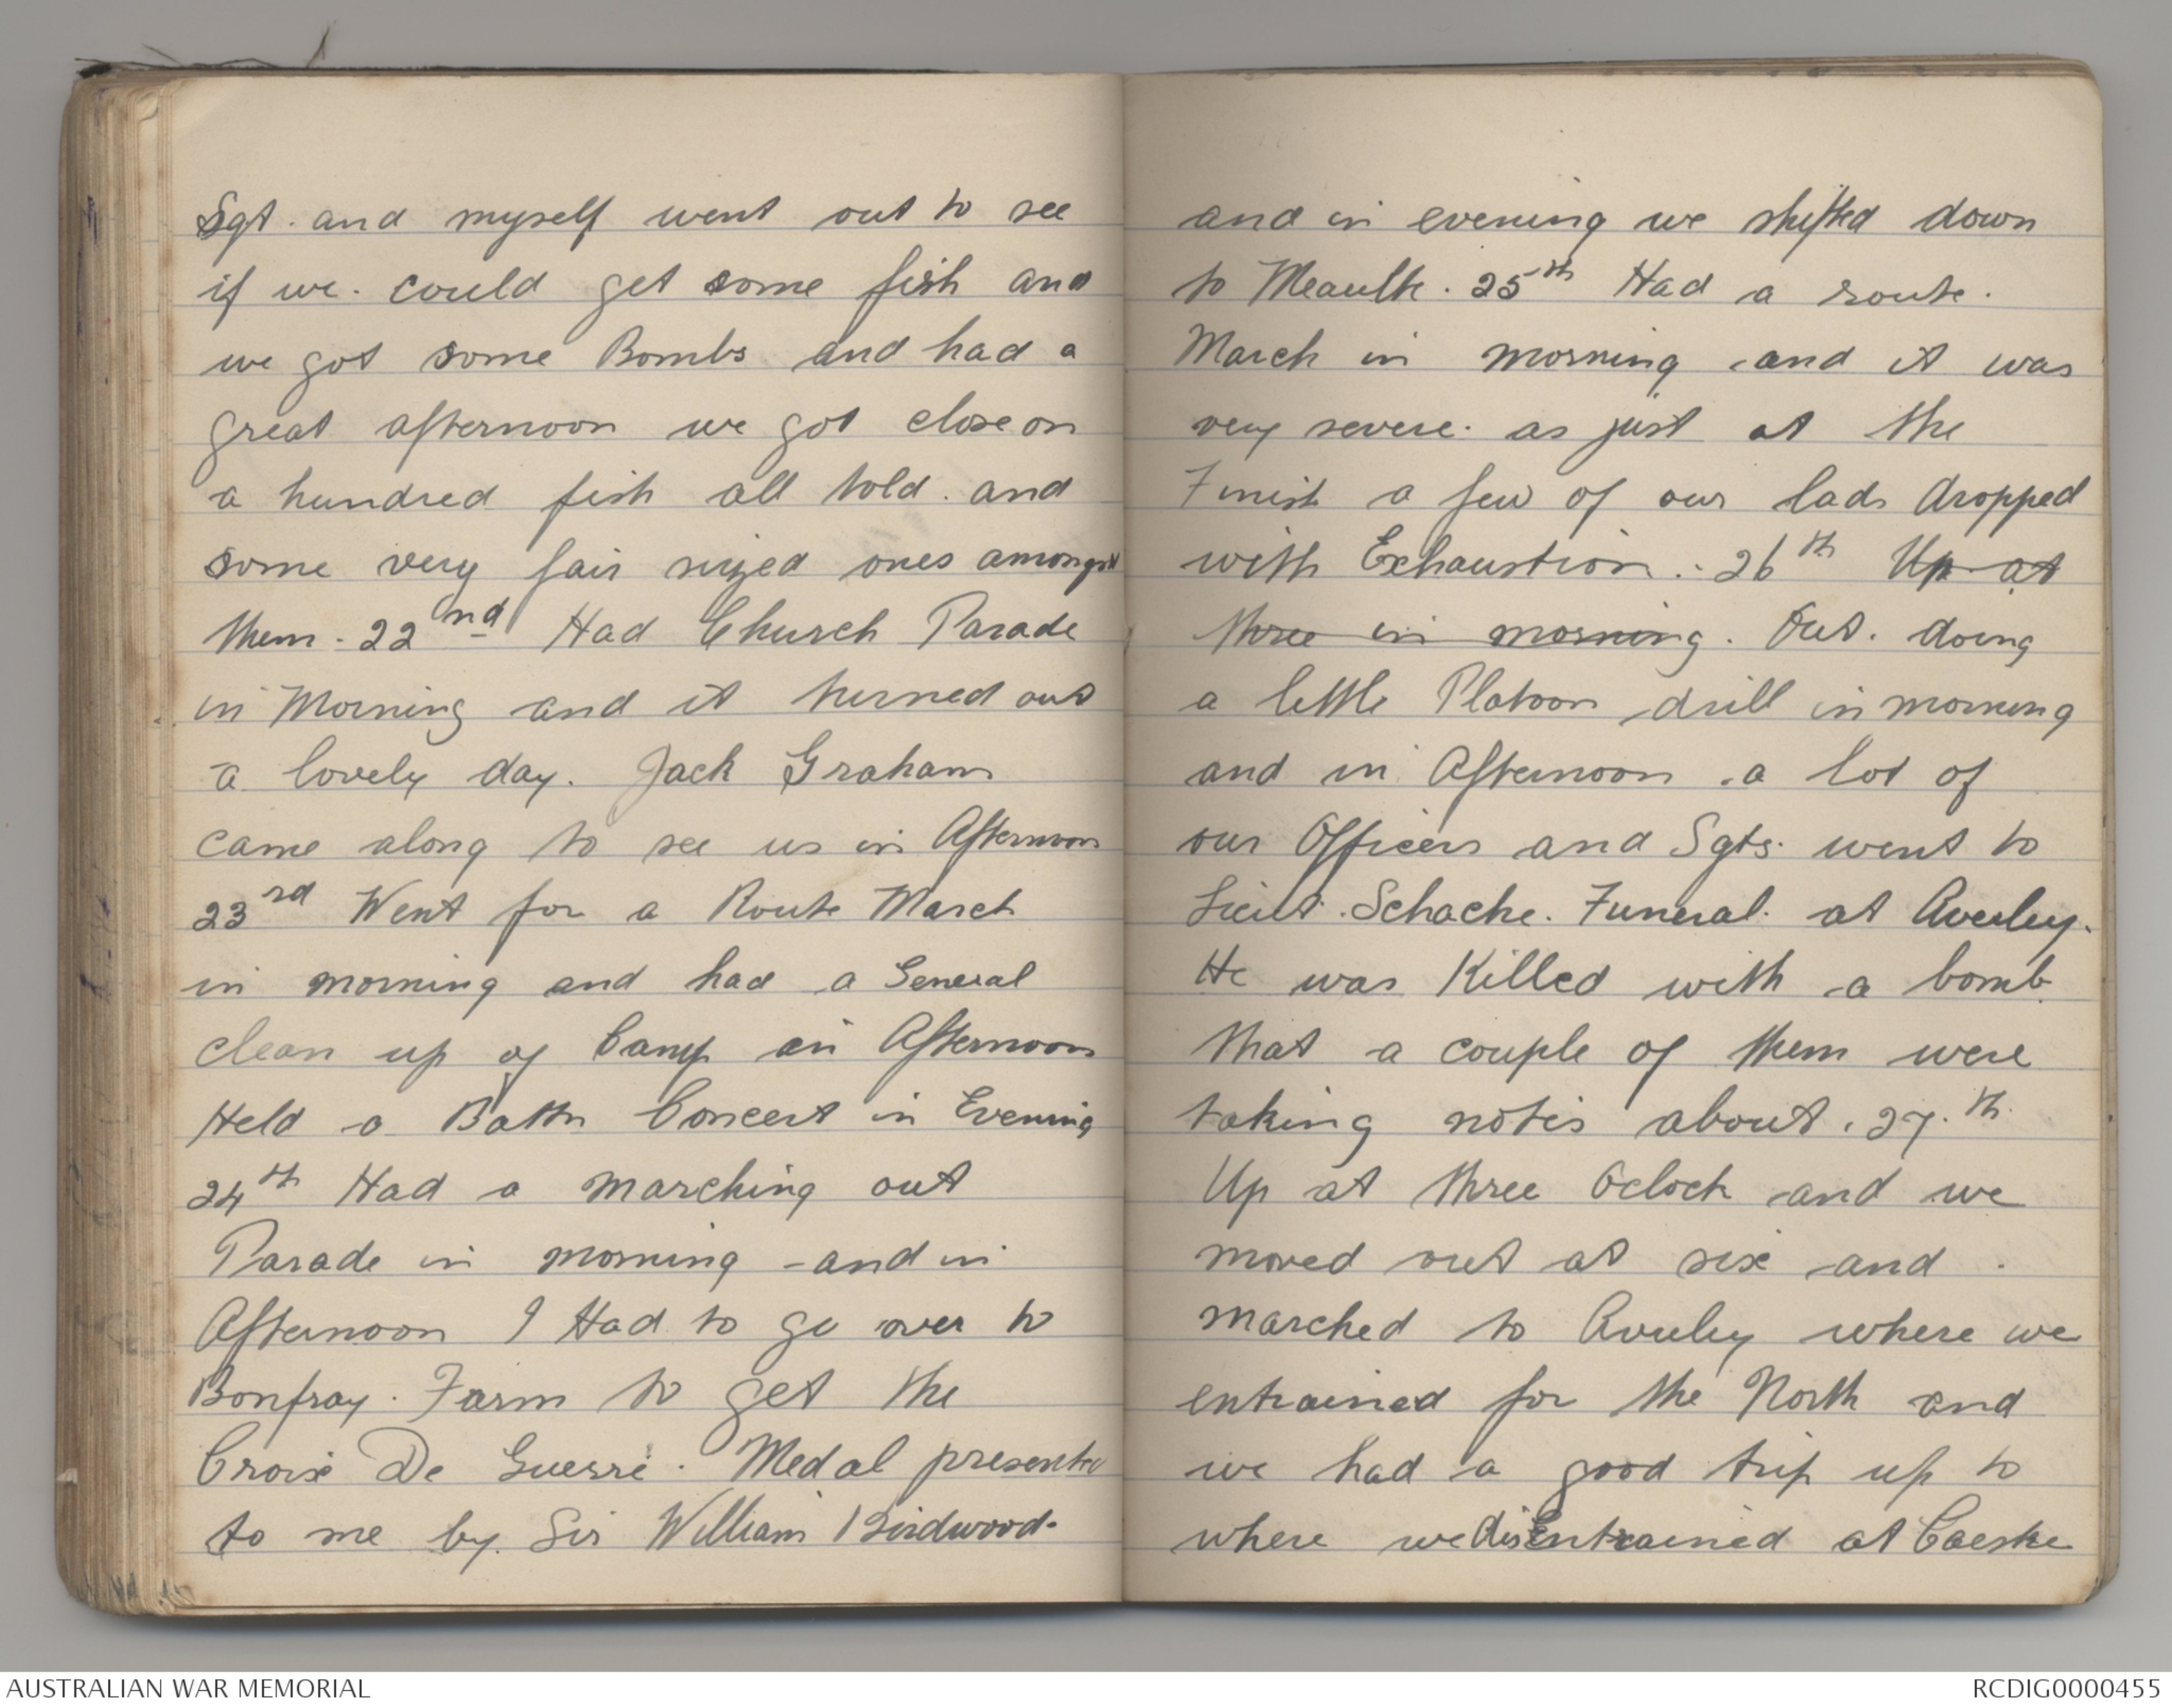 Sgt. and myself went out to see
if we. could get some fish and
we got some Bombs and had a
great afternoon we got close on
a hundred fish all told. and
some very fair sized ones amongst
them. 22nd Had Church Parade
in Morning and it turned out
a lovely day. Jack Graham
came along to see us in Afternoon
23rd Went for a Route March
in morning and had a General
clean up of Camp in Afternoon
Held a Battn Concert in Evening
24th Had a marching out
Parade in morning and in
Afternoon I Had to go over to
Bonfray. Farm to get the
Croix De Guerre. Medal presented
to me by Sir William Birdwood.
and in evening we shifted down
to Meaulte. 25th Had a route.
March in morning and it was
very severe. as just at the
Finish a few of our lads dropped
with Exhaustion. 26th Up at
three in morning. Out. doing
a little Platoon drill in morning
and in Afternoon a lot of
our Officers and Sgts. went to
Lieut. Schache. Funeral. at Aveley.
He was Killed with a bomb
that a couple of them were
taking notes about. 27.th
Up at three Oclock and we
moved out at six and
marched to Aveley where we
entrained for the North and
we had a good trip up to
where we disentrained at Caeske
AUSTRALIAN WAR MEMORIAL
RCDIG0000455